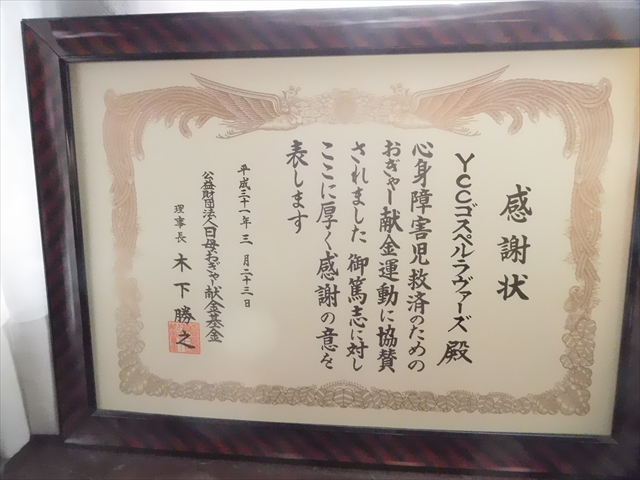 感謝状
YCCゴスペルラヴァーズ 殿
心身障害児救済のための
おぎゃー献金運動に協賛
されました 御篤志に対し
ここに厚く感謝の意を
表します
平成三十一年 三 月二十三日
公益財団法人日母おぎゃー献金基金
理事長 木下勝之